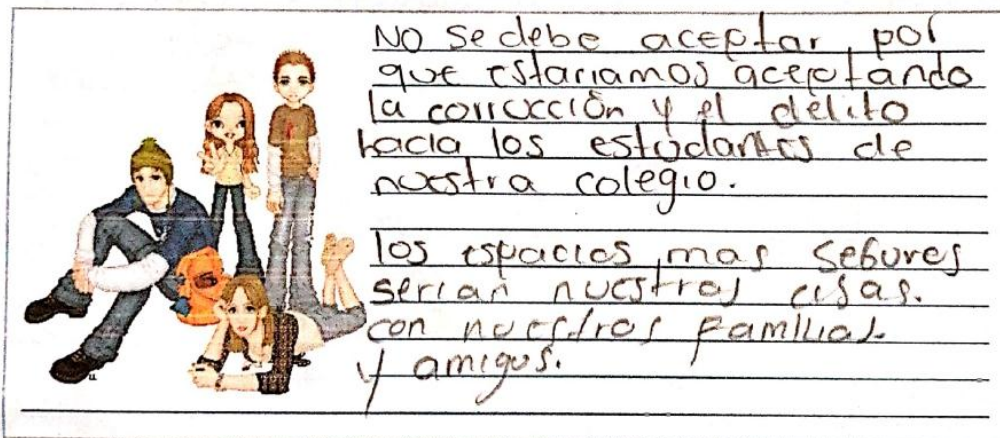 No se debe aceptar, por
que estariamos aceptando
la corrucción y el delito
hacia los estudantes de
nuestra colegio.
los espacios mas seguros
serian nuestras casas.
con nuestros familias
y amigos.